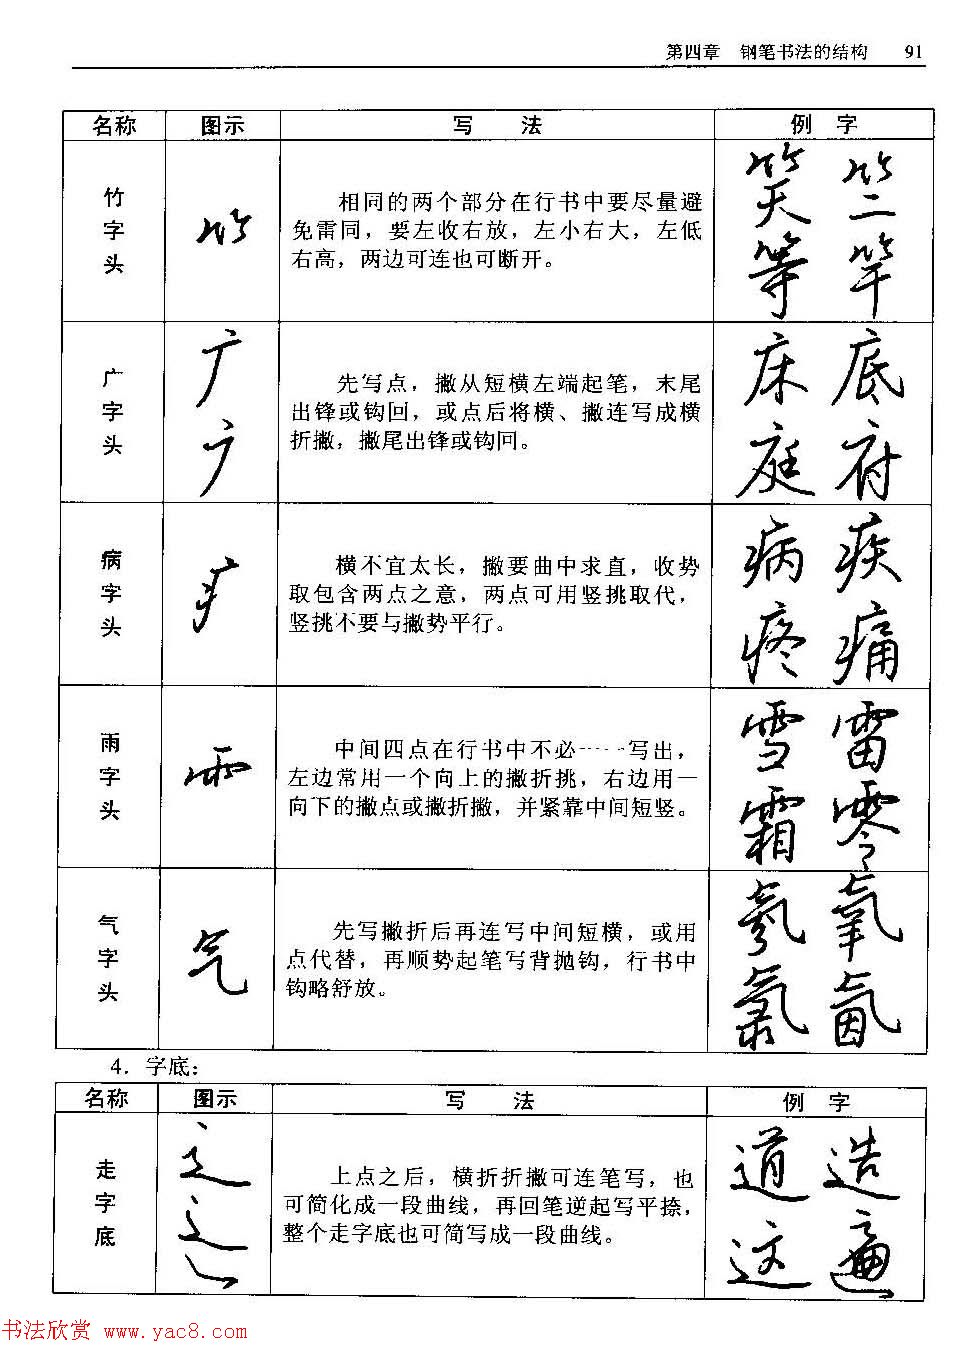 第四章 钢笔书法的结构 91
名称 图示 写 法 例 字
竹字头
相同的两个部分在行书中要尽量避
免雷同，要左收右放，左小右大，左低
右高，两边可连也可断开。
笑 竺
等 竿
广字头
广
先写点，撇从短横左端起笔，末尾
出锋或钩回，或点后将横、撇连写成横
折撇，撇尾出锋或钩回。
床 底
庭 府
病字头
横不宜太长，撇要曲中求直，收势
取包含两点之意，两点可用竖挑取代，
竖挑不要与撇势平行。
病 疾
疼 痛
雨字头
中间四点在行书中不必一一写出，
左边常用一个向上的撇折挑，右边用一
向下的撇点或撇折撇，并紧靠中间短竖。
雪 雷
霜 零
气字头
气
先写撇折后再连写中间短横，或用
点代替，再顺势起笔写背抛钩，行书中
钩略舒放。
氧
氯 氤
4．字底：
名称 图示 写 法 例 字
走字底
辶
上点之后，横折折撇可连笔写，也
可简化成一段曲线，再回笔逆起写平捺，
整个走字底也可简写成一段曲线。
道 造
这 遍
书法欣赏 www.yac8.com